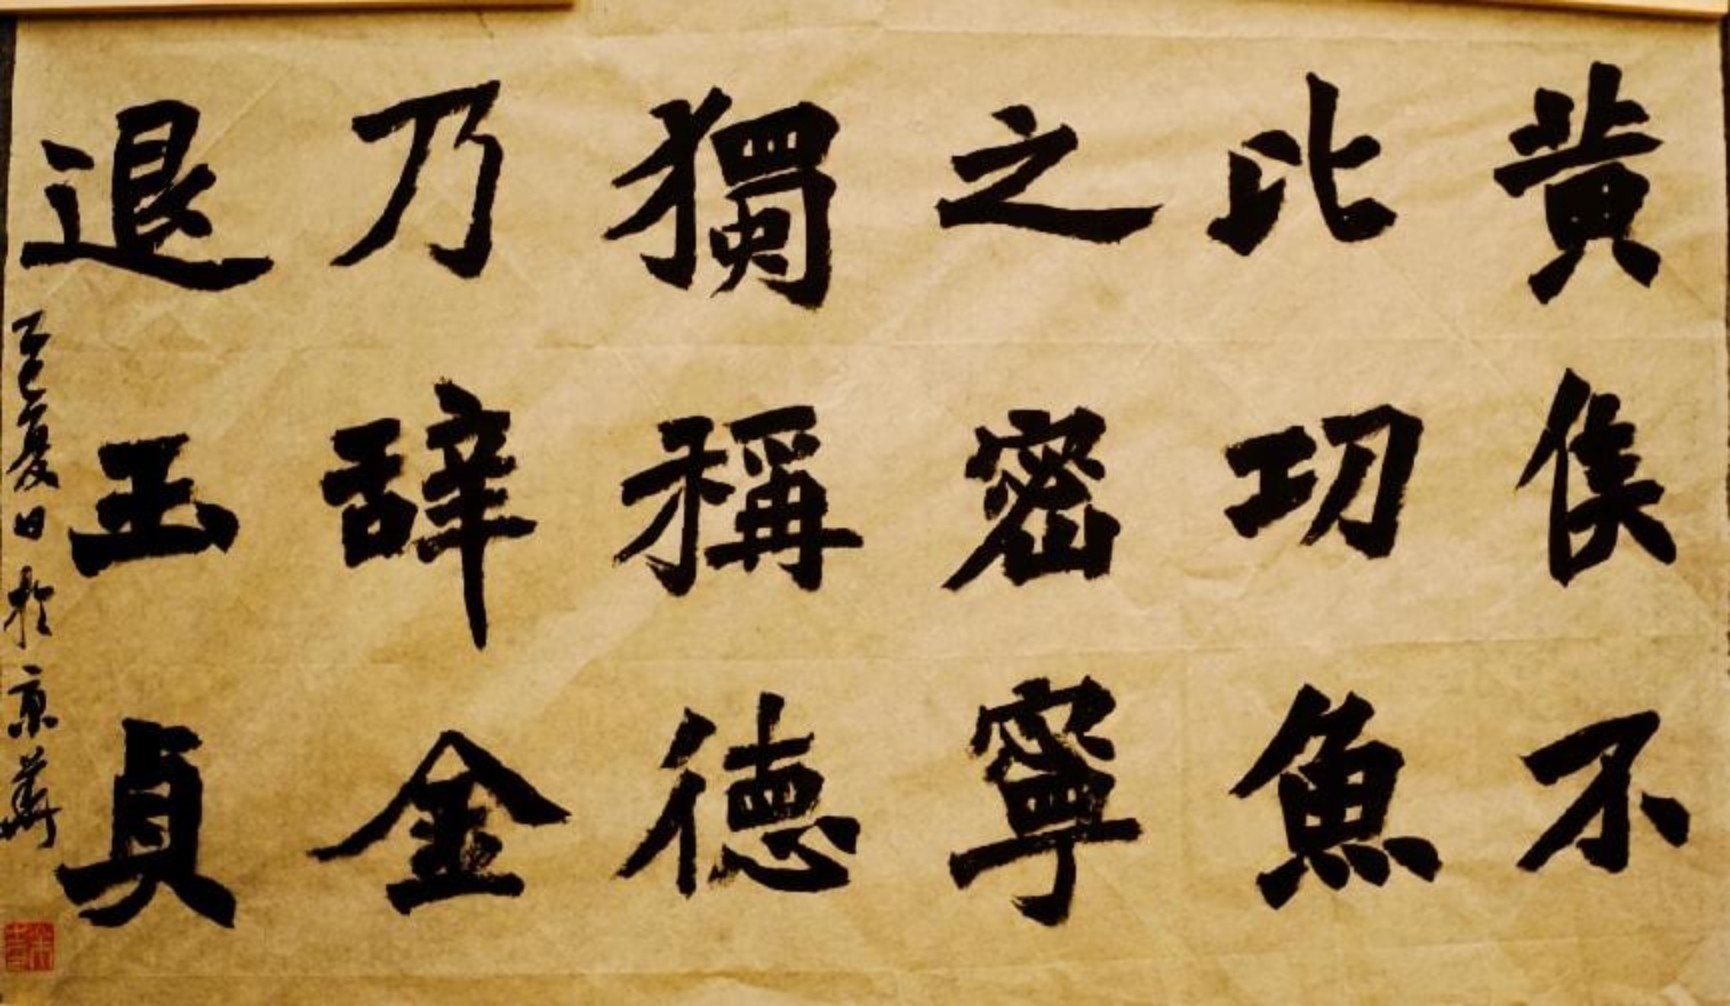 黄侯不
比功魚
之密寧
獨稱德
乃辞金
退玉貞
夏日於京華